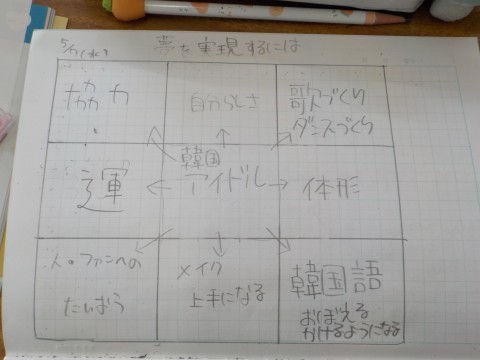 5/7(水)
夢を実現するには
協力
自分らしさ
歌づくり
ダンスづくり
運
韓国
アイドル
体形
人・ファンへの
たいおう
メイク
上手になる
韓国語
おぼえる
かけるようになる